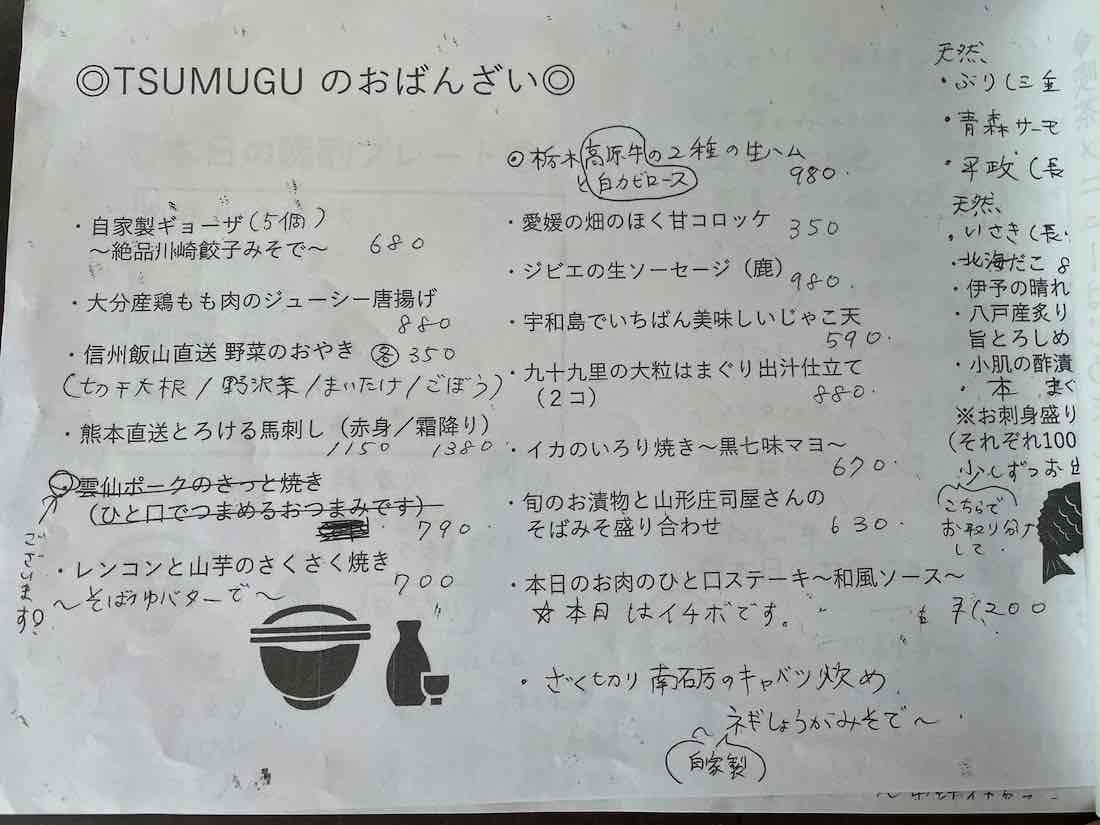 ◎TSUMUGU のおばんざい◎
・自家製ギョーザ(5個)
〜絶品川崎餃子みそで〜 680
・大分産鶏もも肉のジューシー唐揚げ
880
・信州飯山直送 野菜のおやき 各350
(切干大根/野沢菜/まいたけ/ごぼう)
・熊本直送とろける馬刺し(赤身/霜降り)
1150 1380
・雲仙ポークのきっと焼き
(ひと口でつまめるおつまみです)
790
ございます
・レンコンと山芋のさくさく焼き
700
〜そばつゆバターで〜
◎栃木高原牛の2種の生ハム
と白カビロース 980.
・愛媛の畑のほく甘コロッケ 350
・ジビエの生ソーセージ(鹿)
980.
・宇和島でいちばん美味しいじゃこ天
590.
・九十九里の大粒はまぐり出汁仕立て
(2コ) 880.
・イカのいろり焼き〜黒七味マヨ〜
670.
・旬のお漬物と山形庄司屋さんの
そばみそ盛り合わせ 630.
・本日のお肉のひと口ステーキ〜和風ソース〜
☆本日はイチボです。 ¥1,200
・ざくもり 南石のキャベツ炒め
〜ネギしょうがみそで〜
自家製
天然、
・ぶり(三重
・青森サーモ
・平政(長
天然、
・いさき(長
・北海だこ
・伊予の晴れ
・八戸産炙り
旨とろしめ
・小肌の酢漬
・本まぐ
※お刺身盛り
(それぞれ100
少しずつお出
こちらで
お取り分け
して.